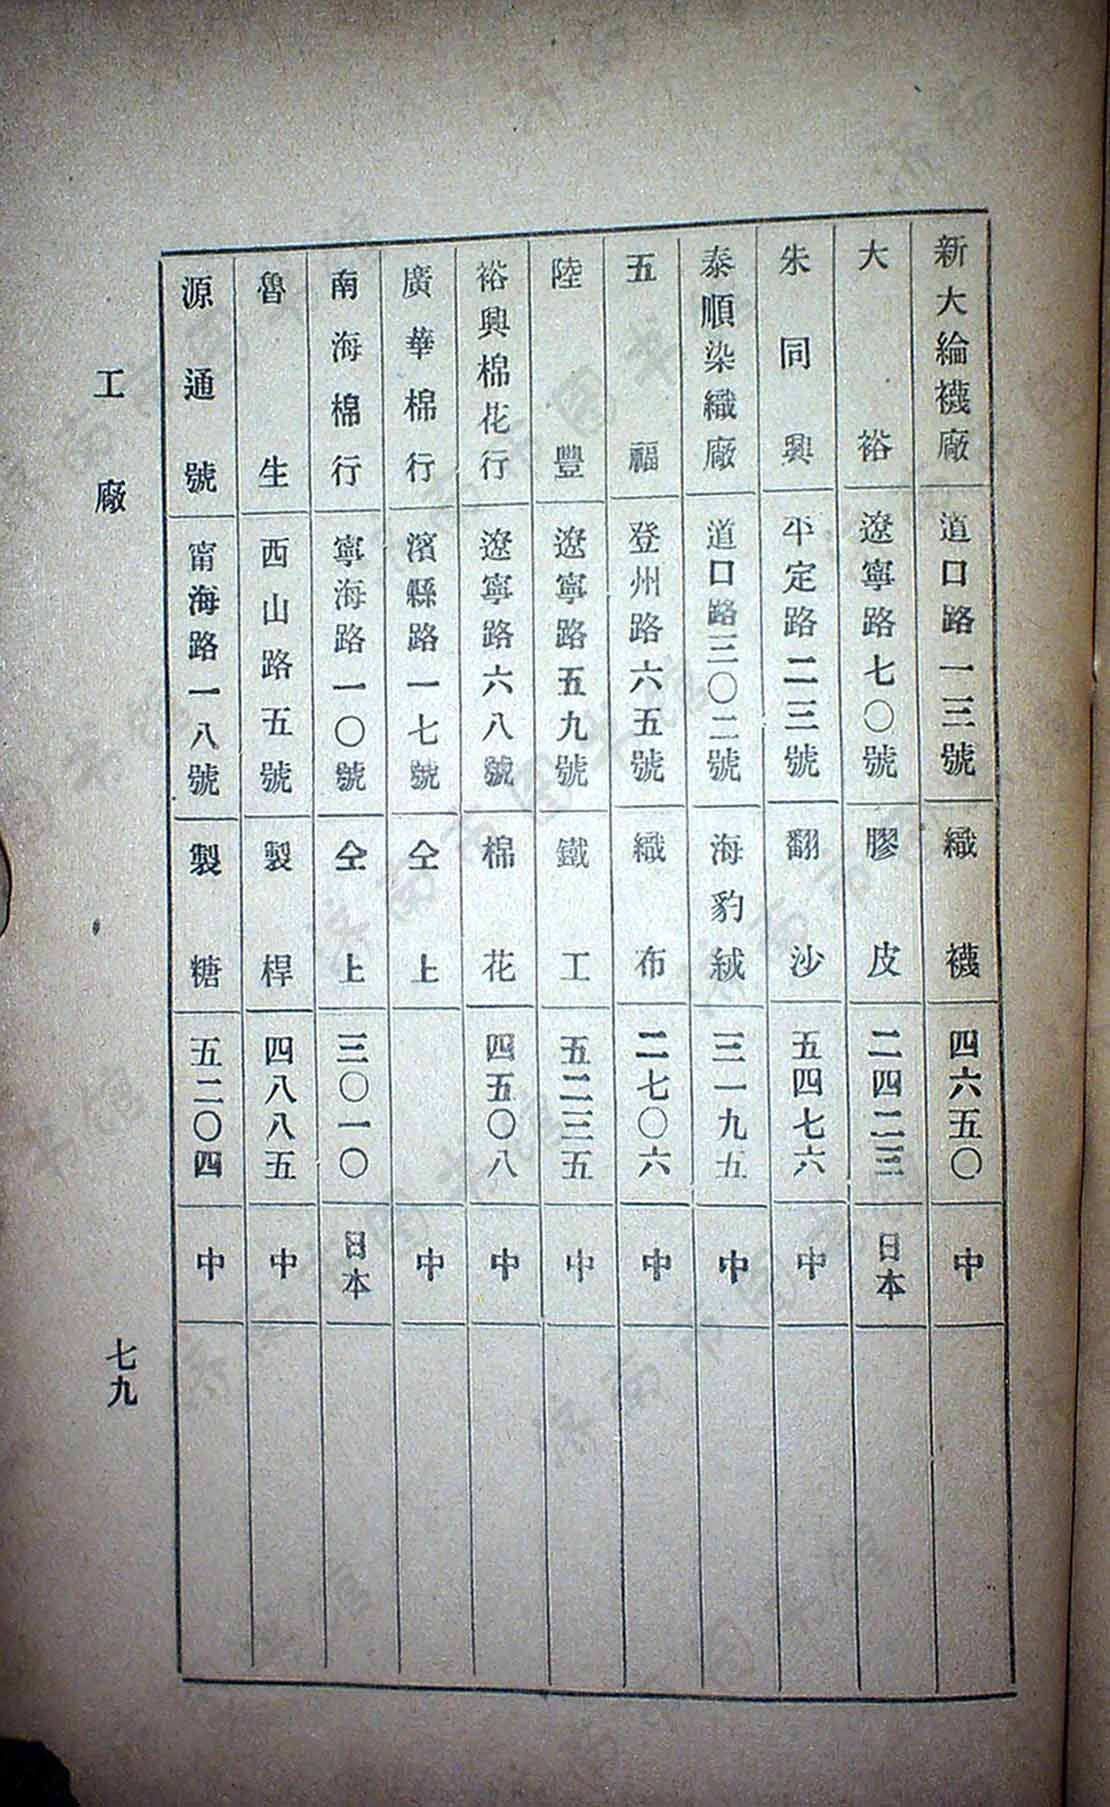 新大綸襪廠 道口路一三號 織襪 四六五〇 中
大裕 遼寧路七〇號 膠皮 二四二三 日本
朱同興 平定路二三號 翻沙 五四七六 中
泰順染織廠 道口路三〇二號 海豹絨 三一九五 中
五福 登州路六五號 織布 二七〇六 中
陸豐 遼寧路五九號 鐵工 五二三五 中
裕興棉花行 遼寧路六八號 棉花 四五〇八 中
廣華棉行 濱縣路一七號 仝上 中
南海棉行 寧海路一〇號 仝上 三〇一〇 日本
魯生 西山路五號 製桿 四八八五 中
源通號 甯海路一八號 製糖 五二〇四 中
工廠
七九